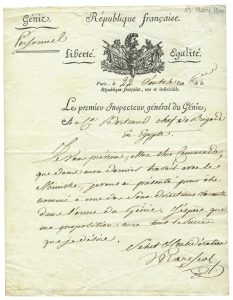 13 mars 1800
Génie.
République française.
Personnel
Liberté.
Egalité.
Paris, le 22 Ventôse an 8
République française, une et indivisible.
Le premier Inspecteur général du Génie,
Au Cn Bertrand chef de Brigade
en Egypte
Je vous préviens, Mon cher Camarade,
que dans mon dernier travail avec le
Ministre, je vous ai présenté pour être
nommé à une des Sous directions vacante
dans l'arme du Génie. J'espère que
ma proposition aura tout le succès
que je désire.
Salut